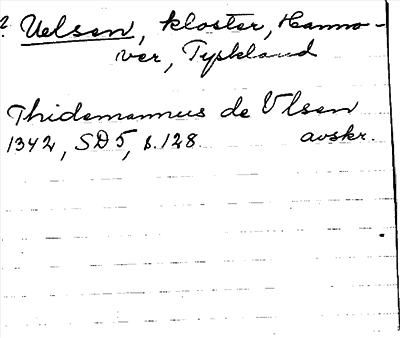 ? Uelsen, kloster, Hanno-
ver, Tyskland
Thidemannus de Vlsen
1342, SD 5, s. 128. avskr.